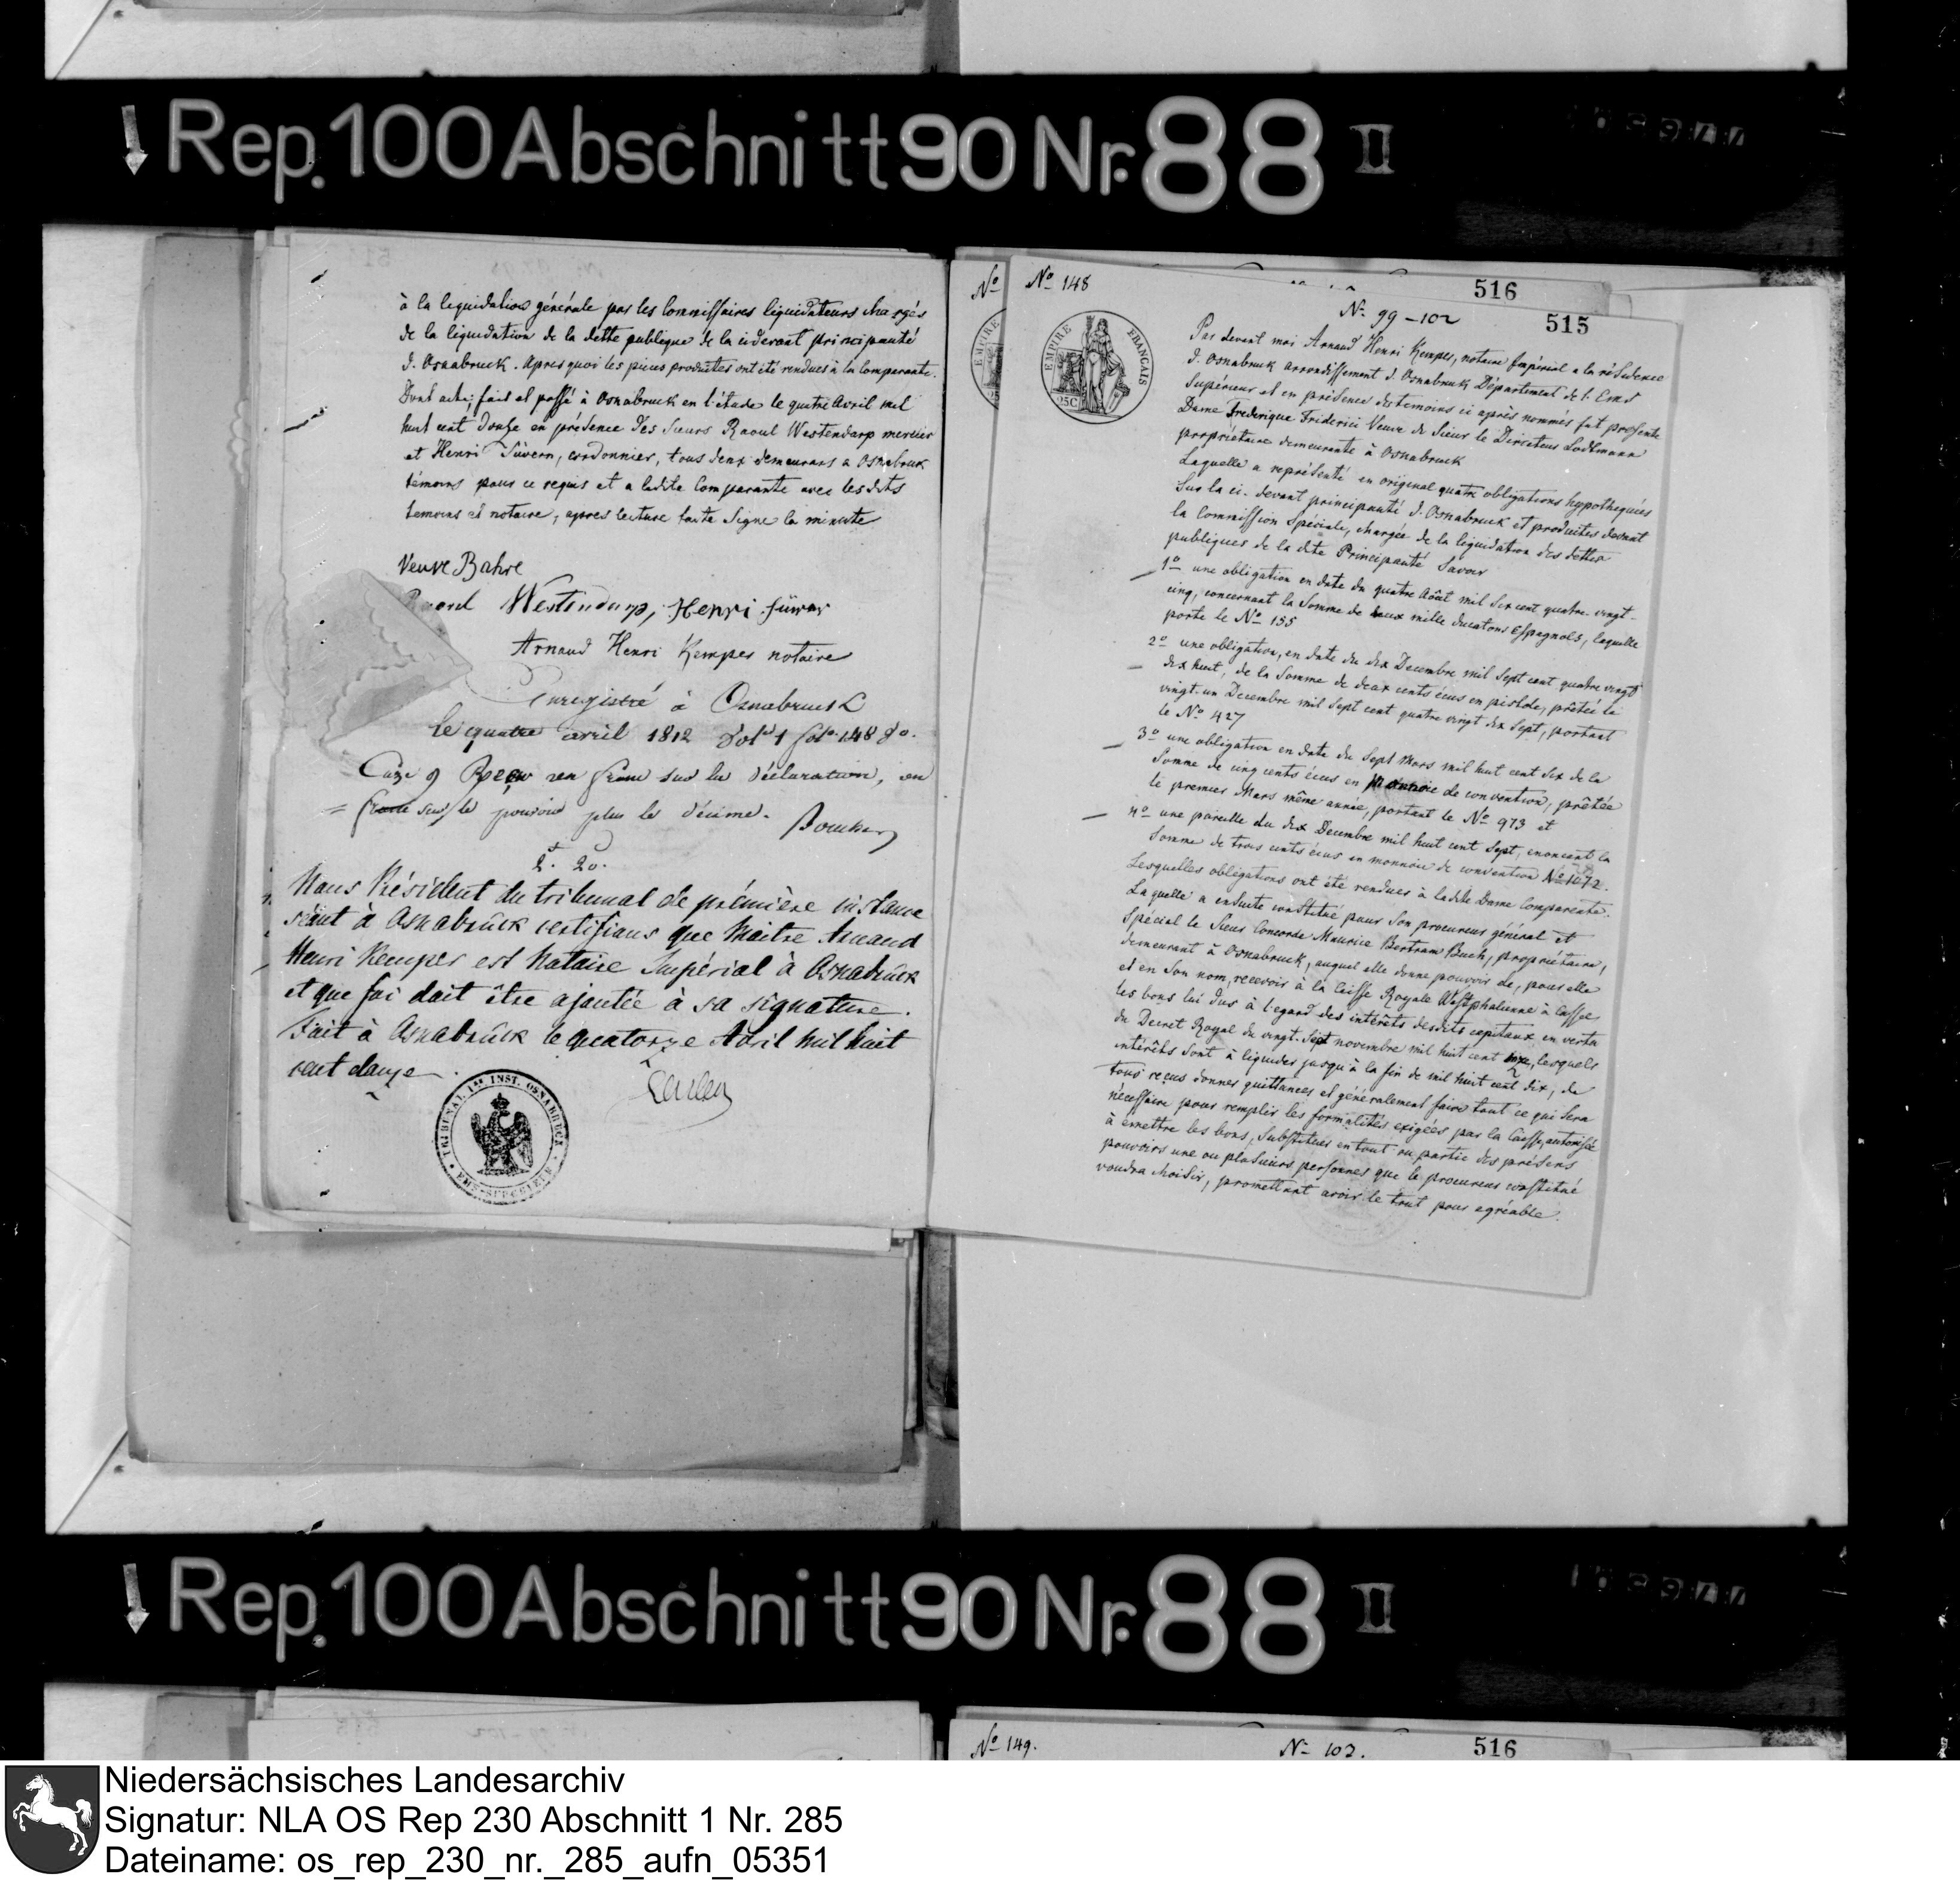 Rep. 100 Abschnitt 90 Nr. 88 II
à la liquidation générale par les Commissaires liquidateurs chargés
de la liquidation de la dette publique de la cidevant principauté
d. Osnabruck. Apres quoi les pieces produites ont été rendues à la Comparante.
Dont acte; fait et passé à Osnabruck en l'étude le quatre Avril mil
huit cent douze en présence des Sieurs Raoul Westendarp mercier
et Henri Süvern, cordonnier, tous deux demeurans a Osnabruck
témoins pour ce requis et a ladite Comparante avec lesdits
temoins et notaire, apres lecture faite Signe la minute
Veuve Bahre
Westendarp, Henri Süvern
Arnaud Henri Kemper notaire
Enregistré à Osnabruck
le quatre avril 1812 Vol. 1 fol. 148
Case 9 Reçu un franc sur la déclaration, un
= franc sur le pouvoir plus le décime.
2. 20.
Nous Président du tribunal de première instance
séant à Osnabrück certifions que Maitre Arnaud
Henri Kemper est Notaire Impérial à Osnabrück
et que foi doit être ajoutée à sa signature.
Fait à Osnabrück le quatorze Avril mil huit
cent douze.
TRIBUNAL 1re INST. OSNABRUCK
EMS-SUPERIEUR
No
No 148
516
N. 99-102
515
EMPIRE FRANCAIS
25C
Par devant moi Arnaud Henri Kemper, notaire Impérial a la résidence
d. Osnabruck arrondissement d. Osnabruck Département de l'Ems
Supérieur et en présence des temoins ci après nommés fut presente
Dame Frederique Friderici Veuve du Sieur le Directeur Lodtmann
propriétaire demeurante à Osnabruck
Laquelle a représenté en original quatre obligations hypothequées
Sur la ci-devant principauté d. Osnabruck et produites devant
la Commission Spéciale, chargée de la liquidation des dettes
publiques de la dite Principauté Savoir
1o une obligation en date du quatre Août mil Six cent quatre-vingt-
cinq, concernant la Somme de deux mille ducatons Espagnols, laquelle
porte le No 155
2o une obligation, en date du dix Decembre mil Sept cent quatre vingt
dix huit, de la Somme de deux cents écus en pistole, prêtée le
vingt-un Decembre mil Sept cent quatre vingt dix Sept, portant
le No 427
3o une obligation en date du Sept Mars mil huit cent Six de la
Somme de cinq cents écus en Monnoie de convention, prêtée
le premier Mars même année, portant le No 973 et
4o une pareille du dix Decembre mil huit cent Sept, enoncant la
Somme de trois cents écus en monnoie de convention No 1072.
Lesquelles obligations ont été rendues à ladite Dame Comparante.
Laquelle a ensuite constitué pour Son procureur général et
Spécial le Sieur Concorde Maurice Bertram Buch, propriétaire,
demeurant à Osnabruck, auquel elle donne pouvoir de, pour elle
et en Son nom, recevoir à la Caisse Royale Westphalienne à Cassel
les bons lui dus à l'egard des intérêts desdits capitaux en vertu
du Decret Royal du vingt-Sept novembre mil huit cent onze, lesquels
intérêts Sont à liquider jusqu'à la fin de mil huit cent dix, de
tous reçus donner quittances et généralement faire tout ce qui Sera
nécessaire pour remplir les formalités exigées par la Caisse, autorisée
à émettre les bons, Substituer en tout ou partie des présens
pouvoirs une ou plusieurs personnes que le procureur constitué
voudra choisir, promettant avoir le tout pour agréable.
Rep. 100 Abschnitt 90 Nr. 88 II
No 149.
N. 102.
516
Niedersächsisches Landesarchiv
Signatur: NLA OS Rep 230 Abschnitt 1 Nr. 285
Dateiname: os_rep_230_nr._285_aufn_05351